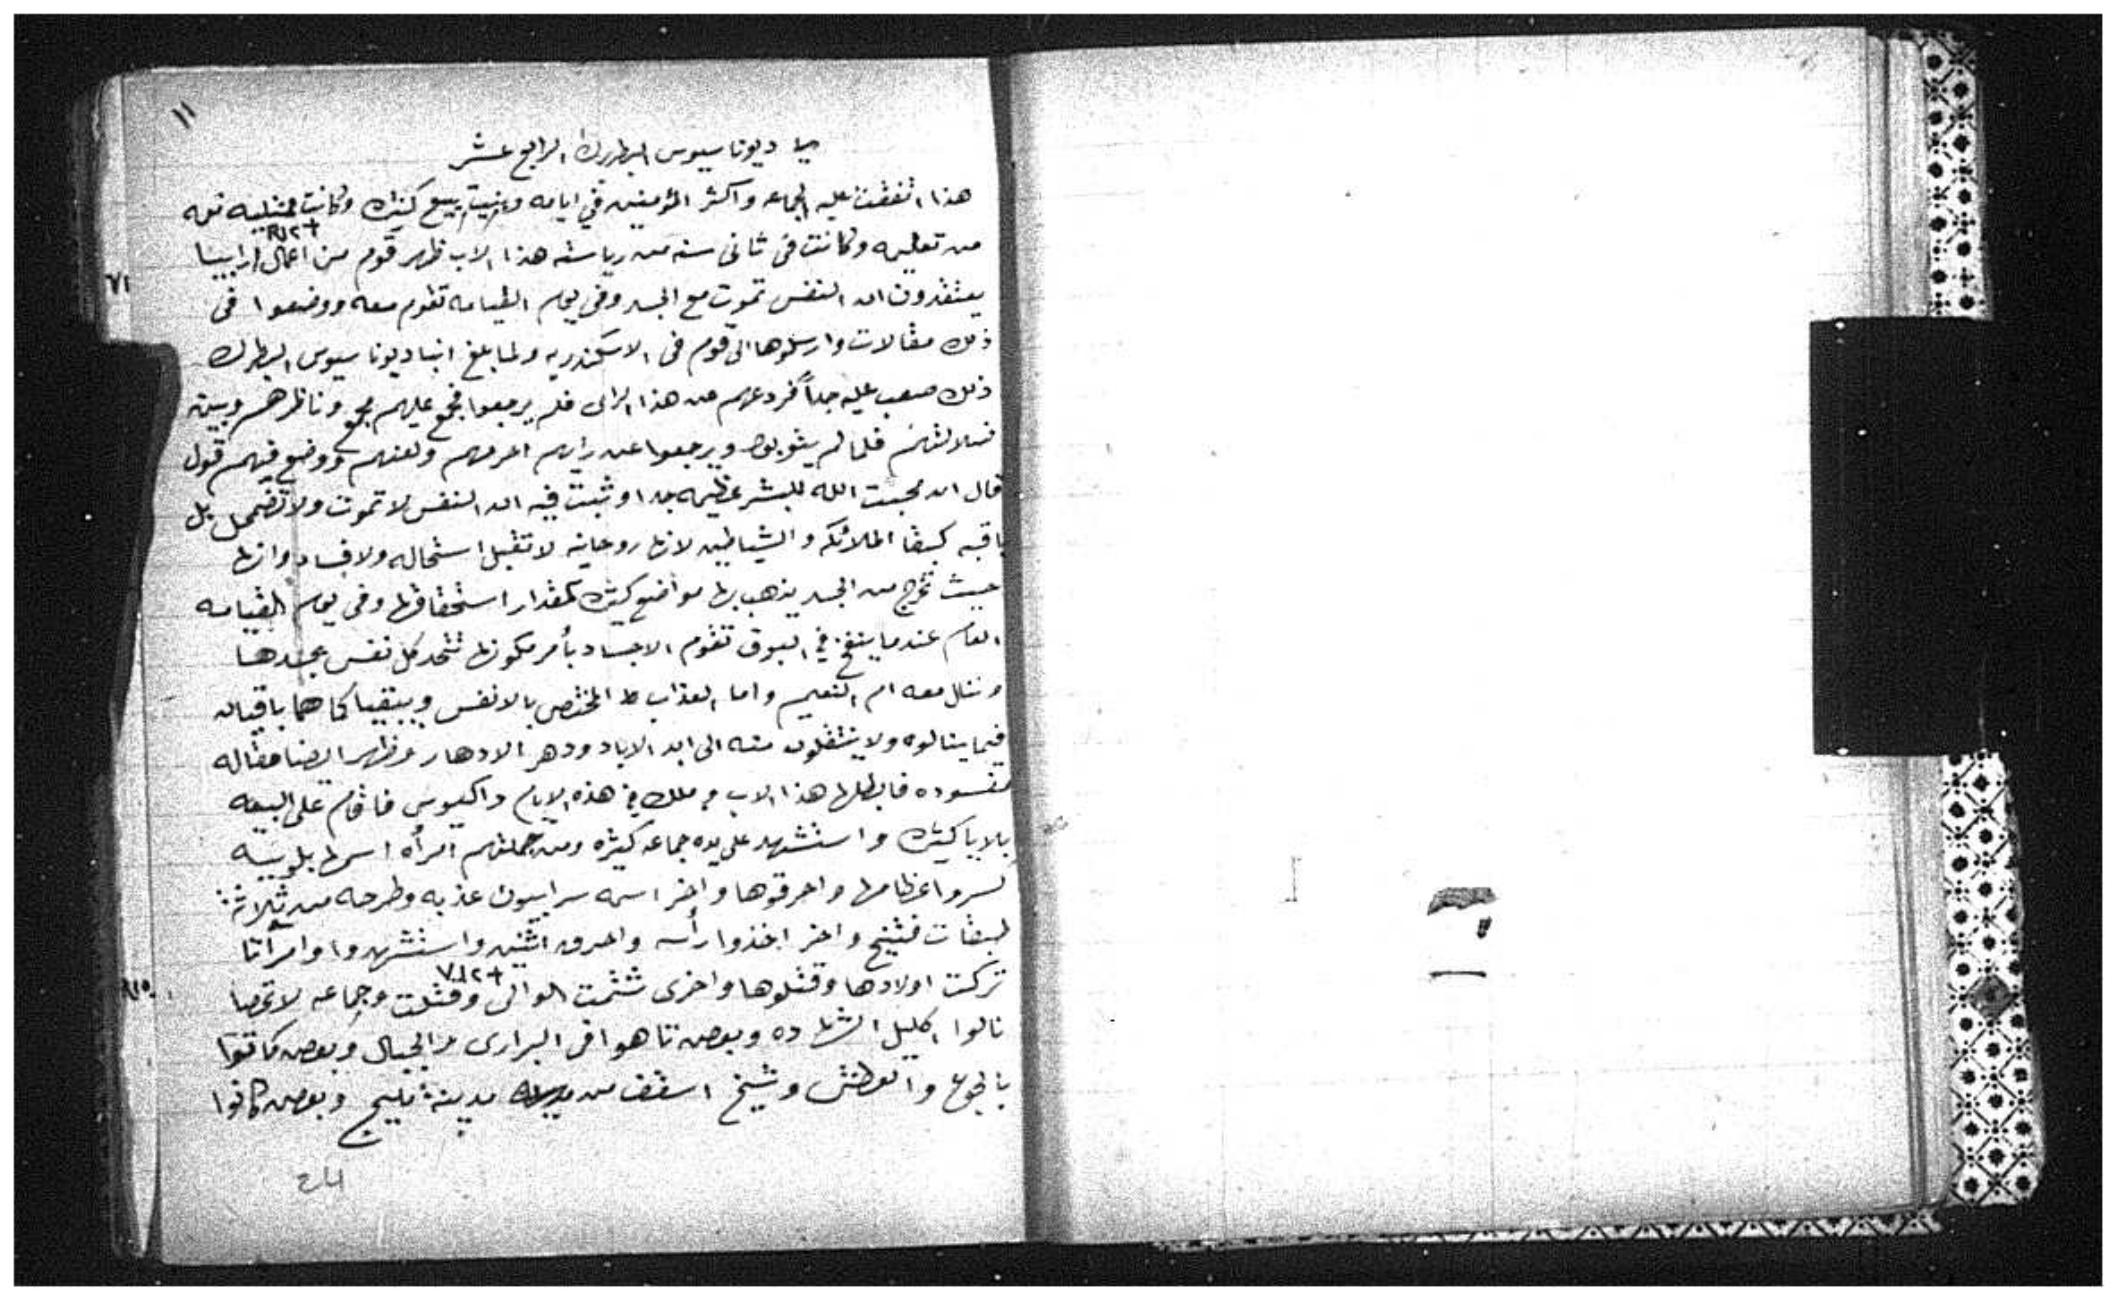 ١١
ديوناسيوس البطريرك الرابع عشر
هذا اتفقت عليه الجماعه واكثر المؤمنين في ايامه وبنيت بيع كثيره وكانت ممتليه نعمه
من تعليمه وكانت فى ثانى سنه من رياسته هذا الاب ظهر قوم من اعمال ارابيا
يعتقدون ان النفس تموت مع الجسد وفى يوم القيامه تقوم معه ووضعوا فى
ذلك مقالات وارسلوها الى قوم فى الاسكندريه ولما بلغ انبا ديوناسيوس البطرك
ذلك صعب عليه جداً فردعهم عن هذا الراى فلم يرجعوا فجمع عليهم مجمع وناظرهم وبين
ضلالتهم فلما لم يتوبوا ويرجعوا عن رايهم احرمهم ولعنهم ووضع فيهم قول
قال ان محبت الله للبشر عظيمه جدا وثبت فيه ان النفس لا تموت ولا تضمحل بل
باقيه كبقا الملائكه والشياطين لانها روحانيه لا تقبل استحاله ولا فساد وانها
حيث تخرج من الجسد يذهب بها مواضع كثيره كمقدار استحقاقها وفى يوم القيامه
العام عندما ينفخ في البوق تقوم الاجساد بأمر مكونها تتحد كل نفس بجسدها
وتنال معه ام النعيم واما العذاب المختص بالانفس ويبقيا كما هما باقيان
فيما ينالوه ولا ينتقلون منه الى ابد الاباد ودهر الادهار وظهر ايضا مقاله
مفسوده فابطلها هذا الاب وملك في هذه الايام داكيوس فاقام على البيعه
بلايا كثيره واستشهد على يده جماعه كثيره ومن جملتهم امرأه اسمها بلوسيه
كسروا عظامها واحرقوها واخر اسمه سرابيون عذبه وطرحه من ثلاثة
طبقات فتنيح واخر اخذوا رأسه واحرق اثنين واستشهدوا وامرأتا
تركت اولادها وقتلوها واخرى شتمت الوالى وقتلت وجماعه لا تحصا
نالوا اكليل الشهاده وبعض تاهوا فى البرارى والجبال وبعض ماتوا
بالجوع والعطش وشيخ اسقف من مدينة مليج وبعض كانوا